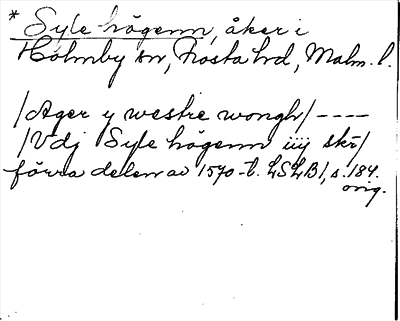 * Syle högenn, åker i
Holmby sn, Frosta hd, Malm. l.
/Ager y westre wongh/ ----
/Vdj Syle högenn iiij skr/
förra delen av 1570-t. LSLB1, s. 184.
orig.